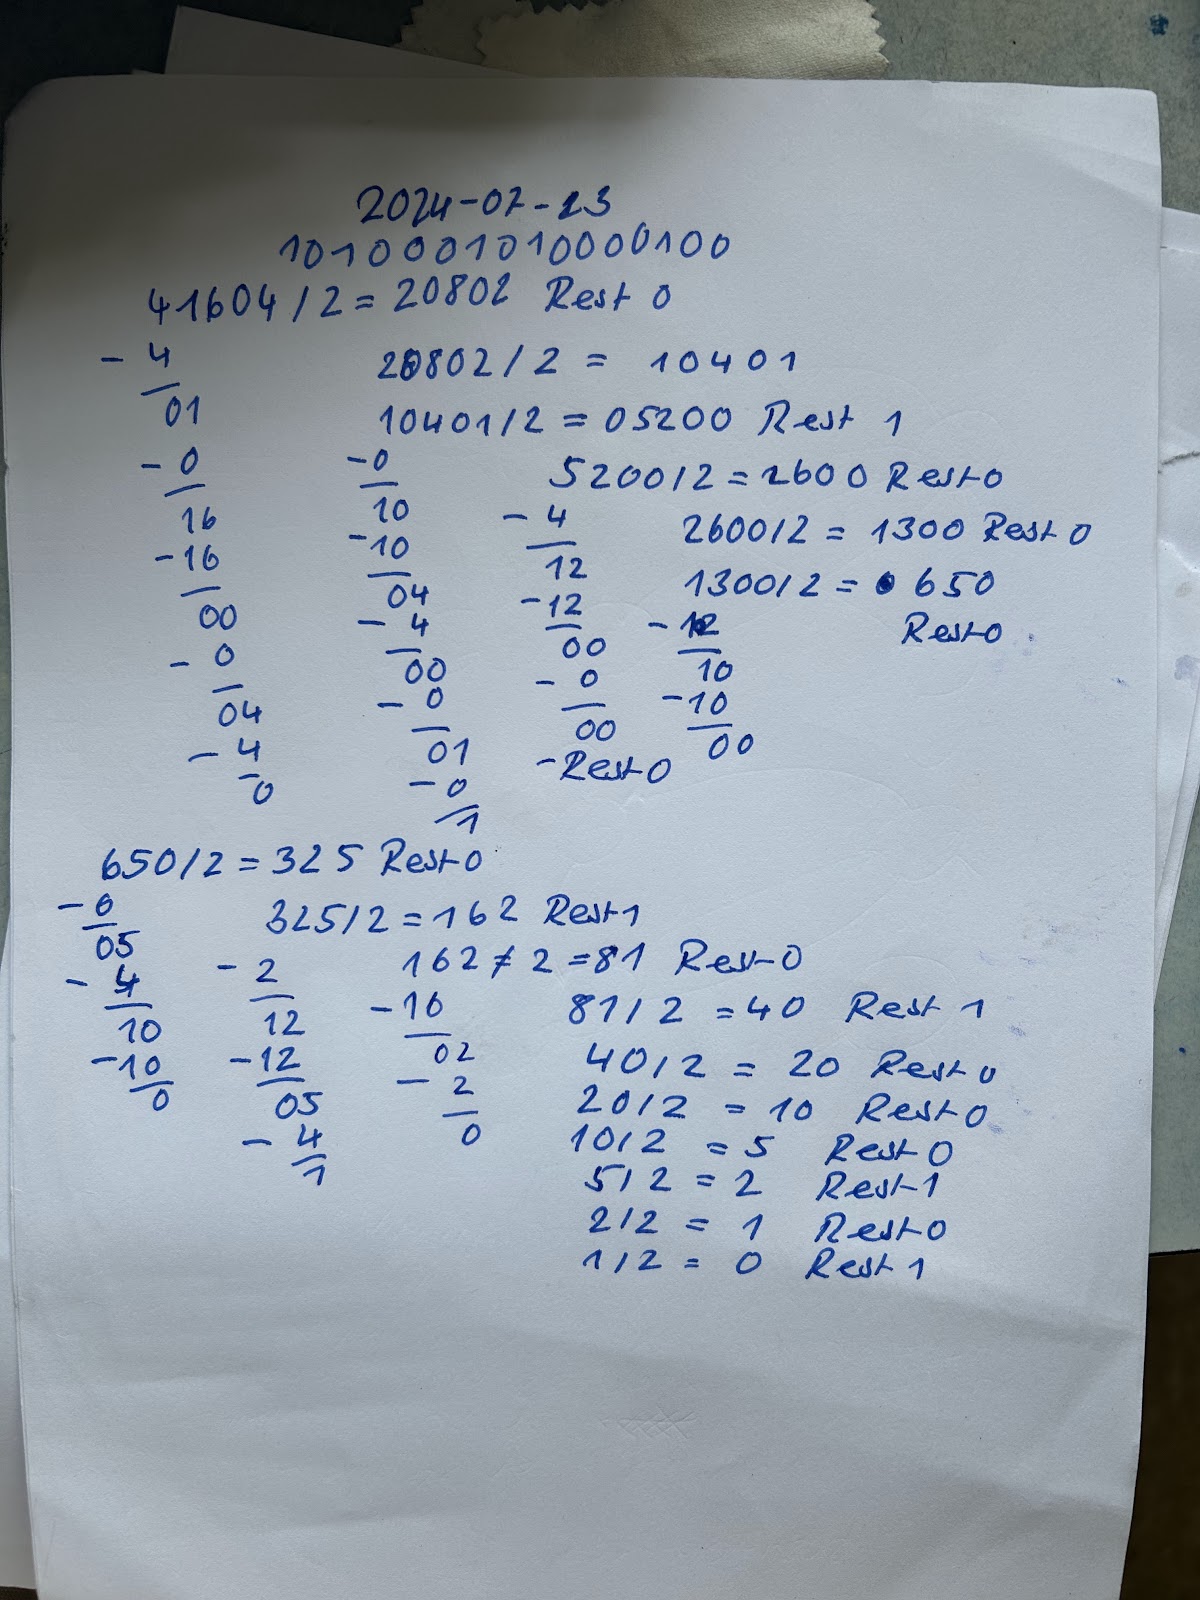 2024-07-23
1010001010000100
41604/2=20802 Rest 0
- 4
01
- 0
16
-16
00
- 0
04
- 4
0
20802/2 = 10401
10401/2=05200 Rest 1
-0
10
-10
04
- 4
00
- 0
01
- 0
1
5200/2=2600 Rest 0
- 4
12
-12
00
- 0
00
-Rest 0
2600/2= 1300 Rest 0
1300/2= 0 650
Rest 0
-12
10
-10
00
650/2=325 Rest 0
-6
05
- 4
10
-10
0
325/2=162 Rest 1
- 2
12
-12
05
- 4
1
162/2=81 Rest 0
-16
02
- 2
0
81/2 =40 Rest 1
40/2 = 20 Rest 0
20/2 = 10 Rest 0
10/2 = 5 Rest 0
5/2 = 2 Rest 1
2/2 = 1 Rest 0
1/2 = 0 Rest 1